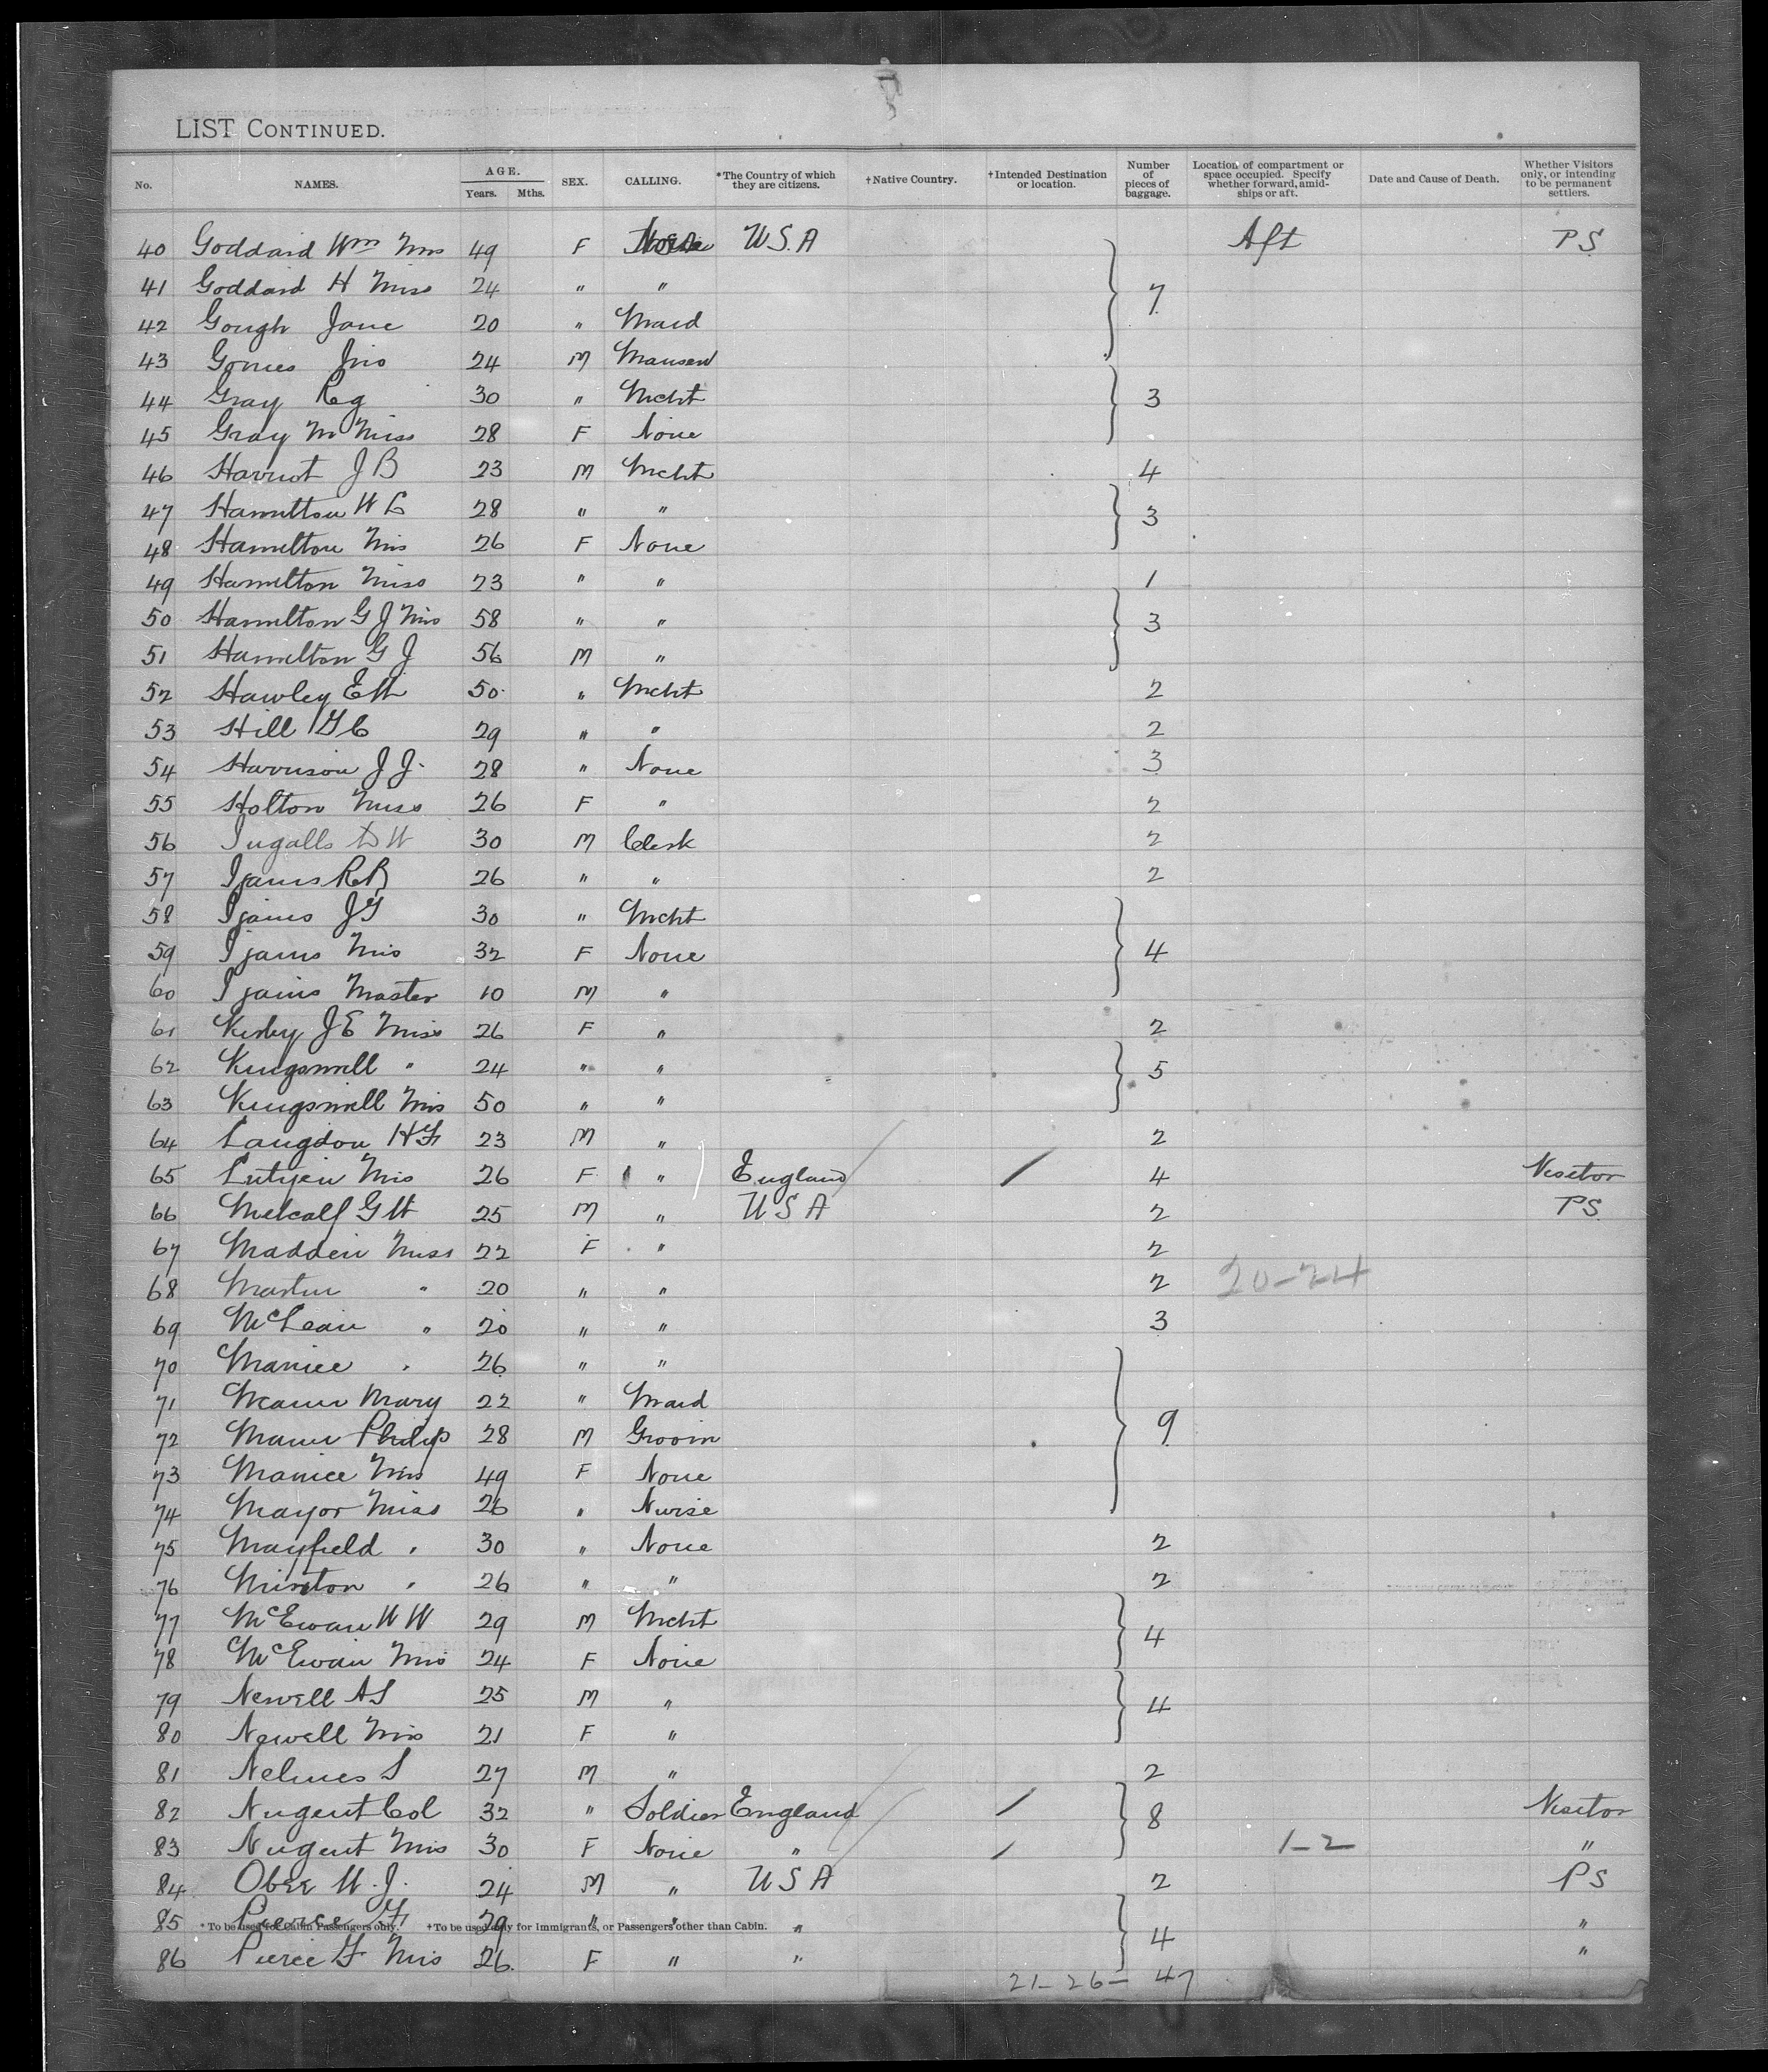 LIST CONTINUED.
No. NAMES. AGE. Years. Mths. SEX. CALLING. *The Country of which they are citizens. †Native Country. †Intended Destination or location. Number of pieces of baggage. Location of compartment or space occupied. Specify whether forward, amidships or aft. Date and Cause of Death. Whether Visitors only, or intending to be permanent settlers.
40 Goddard Wm Mrs 49 F None U.S.A Aft P S
41 Goddard H Miss 24 " "
42 Gough Jane 20 " Maid 7
43 Gomes Jno 24 M
44 Gray Reg 30 " Mcht 3
45 Gray M Miss 28 F None
46 Harriot J B 23 M Mcht 4
47 Hamilton W C 28 " " 3
48 Hamilton Mrs 26 F None
49 Hamilton Miss 23 " " 1
50 Hamilton G J Mrs 58 " " 3
51 Hamilton G J 56 M "
52 Hawley E H 50 " Mcht 2
53 Hill G C 29 " " 2
54 Harrison J J. 28 " None 3
55 Holton Miss 26 F " 2
56 Ingalls D W 30 M Clerk 2
57 Ijams R R 26 " " 2
58 Ijams J T 30 " Mcht
59 Ijams Mrs 32 F None 4
60 Ijams Master 10 M "
61 Kirby J E Miss 26 F " 2
62 Kingsmill " 24 " " 5
63 Kingsmill Mrs 50 " "
64 Langdon H F 23 M " 2
65 Lutyen Mrs 26 F " England / 4 Visitor
66 Metcalf G H 25 M " U S A 2 P S
67 Madden Miss 22 F " 2
68 Martin " 20 " " 2 20-24
69 McLean " 20 " " 3
70 Manice " 26 " "
71 Mary 22 " Maid
72 Mann Philip 28 M Groom 9
73 Manice Mrs 49 F None
74 Mayor Miss 26 " Nurse
75 Mayfield " 30 " None 2
76 Minton " 26 " " 2
77 McEwan W W 29 M Mcht 4
78 McEwan Mrs 24 F None
79 Newell A S 25 M " 4
80 Newell Mrs 21 F "
81 Nelmes S 27 M " 2
82 Nugent Col 32 " Soldier England / 8 Visitor
83 Nugent Mrs 30 F None " / 1-2 "
84 Ober W. J. 24 M " U S A 2 P S
85 Pierce F 29 " " " 4 "
*To be used for Cabin Passengers only. †To be used only for Immigrants, or Passengers other than Cabin.
86 Pierce F Mrs 26 F " " "
21-26- 47